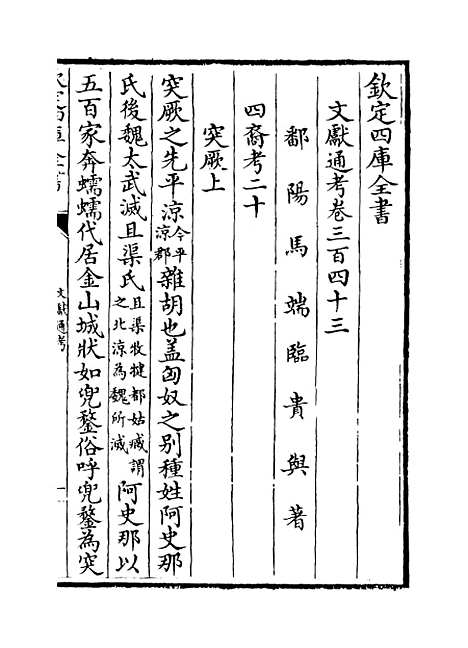 欽定四庫全書
文獻通考卷三百四十三
鄱陽馬端臨貴與著
四裔考二十
突厥上
突厥之先平涼今平涼郡雜胡也盖匈奴之别種姓阿史那
氏後魏太武滅且渠氏且渠牧犍都姑臧謂之北涼為魏所滅阿史那以
五百家奔蠕蠕代居金山城狀如兜鍪俗呼兜鍪為突
文獻通考
一